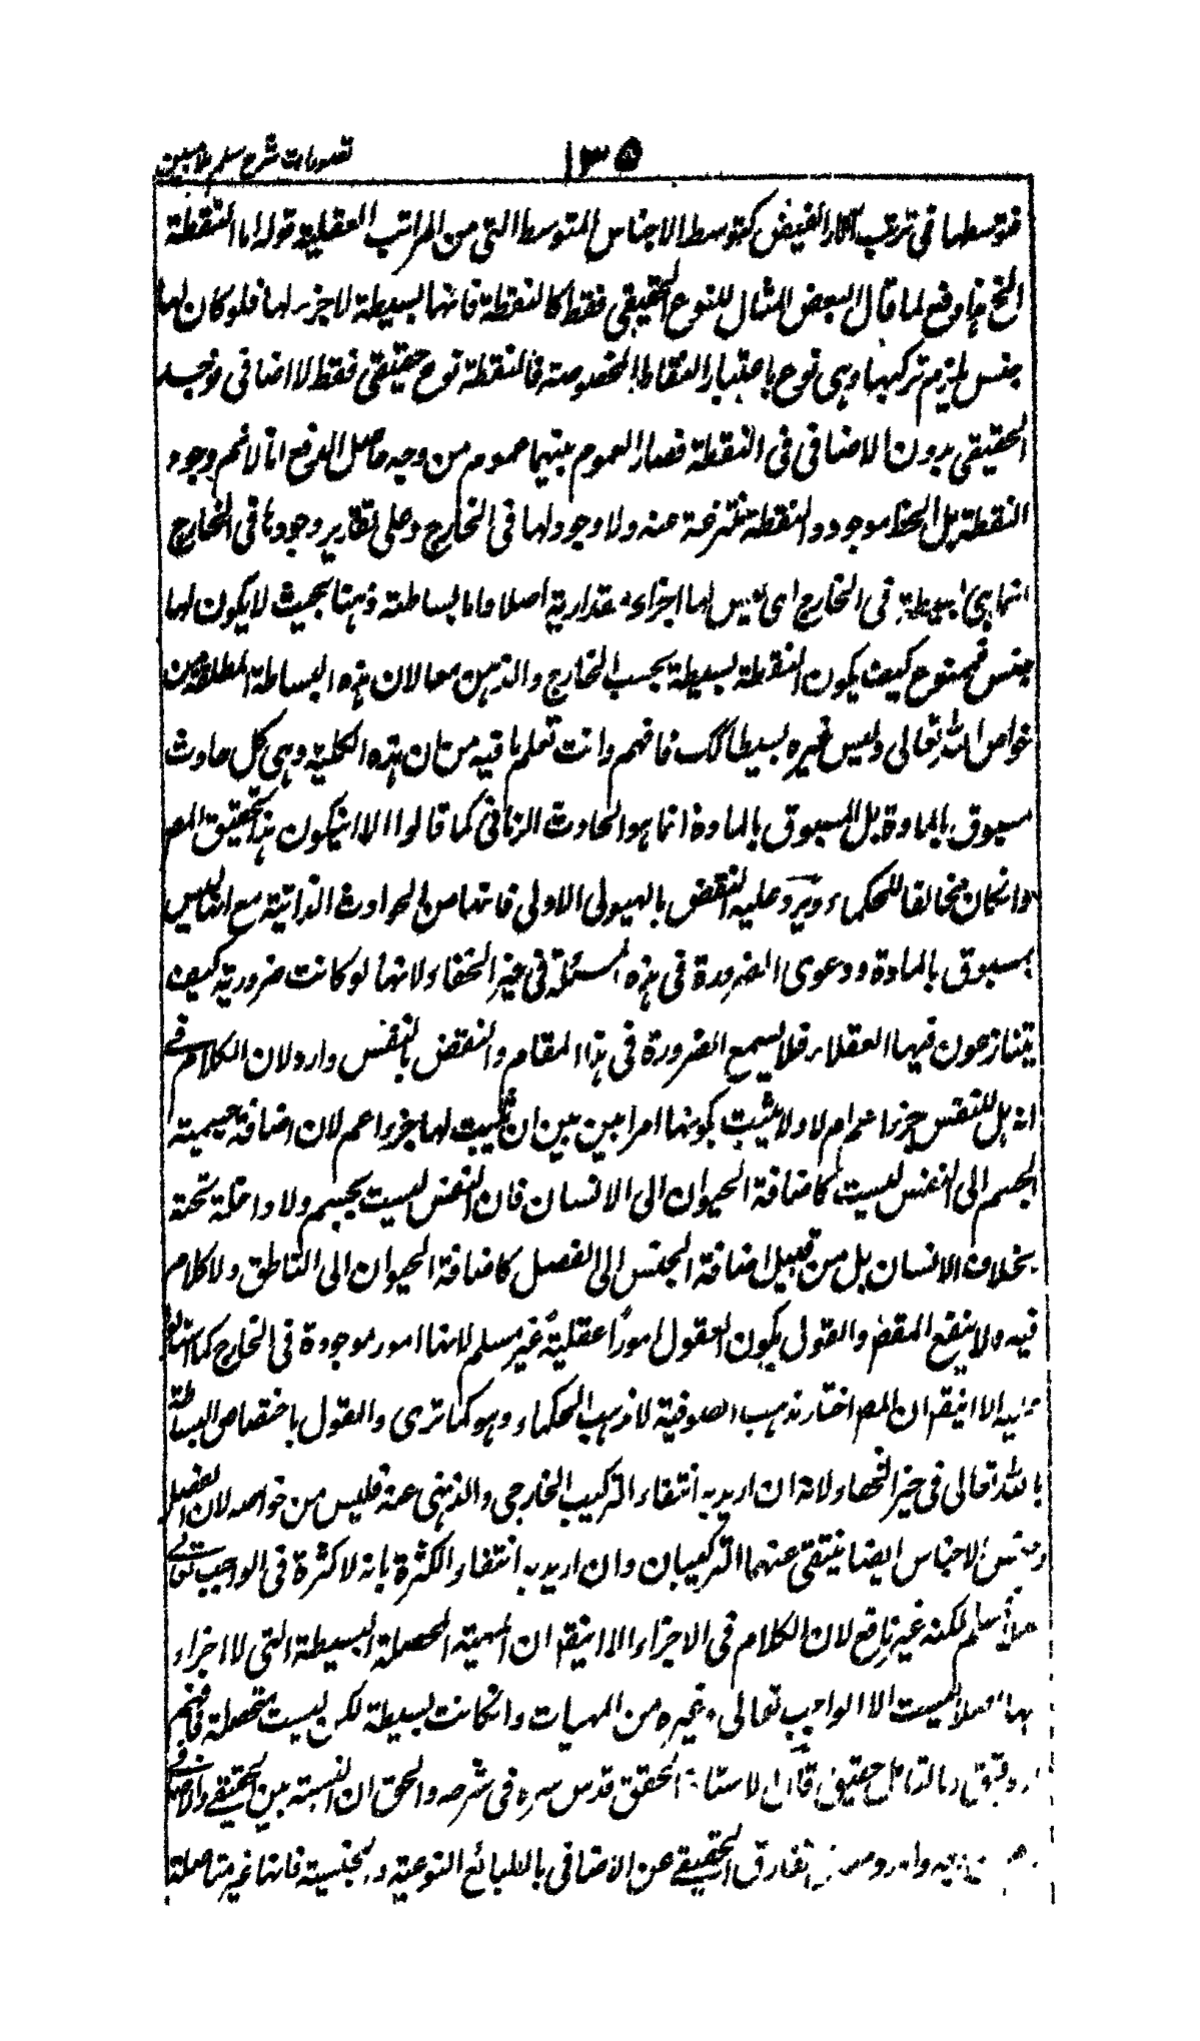 ١٣٥ تصورات شرح سلم ملا مبين
فتوسطها فى ترتب آثار الفيض كتوسط الاجناس المتوسط التى من المراتب العقلية قوله اما النقطة
الخ هذا دفع لما قال البعض المثال للنوع الحقيقى فقط كالنقطة فانها بسيطة لا جزء لها فلو كان لها
جنس لزم تركبها وهى نوع باعتبار النقاط المخصوصة فالنقطة نوع حقيقى فقط لا اضافى فوجد
الحقيقى بدون الاضافى فى النقطة فصار العموم بينهما عموم من وجه حاصل الدفع انا لا نم وجود
النقطة بل الخط موجود والنقطة منتزعة عنه ولا وجود لها فى الخارج وعلى تقدير وجودها فى الخارج
انما هى بسيطة فى الخارج اى ليس لها اجزاء مقدارية اصلا واما بساطته ذهنا بحيث لا يكون لها
جنس فممنوع كيف يكون النقطة بسيطة بحسب الخارج والذهن معا لان هذه البساطة المطلقة من
خواص الله تعالى وليس غيره بسيطا كك فافهم وانت تعلم ما فيه من ان هذه الكلية وهى كل حادث
مسبوق بالمادة بل المسبوق بالمادة انما هو الحادث الزمانى كما قالوا الا ان يكون هذا تحقيق المص
وانكان مخالفا للحكماء ويرد عليه النقض بالهيولى الاولى فانها من الحوادث الذاتية مع انها ليس
بمسبوق بالمادة ودعوى الضرورة فى هذه المسئلة فى حيز الخفاء لانها لو كانت ضرورية كيف
يتنازعون فيها العقلاء فلا يسمع الضرورة فى هذا المقام والنقض بالنفس وارد لان الكلام فى
انه هل للنفس جزء اعم ام لا ولا يثبت بكونها امرا بين بين ان يثبت لها جزء اعم لان اضافة جسمية
الجسم الى النفس ليست كاضافة الحيوان الى الانسان فان النفس ليست بجسم ولا داخلة تحته
بخلاف الانسان بل من قبيل اضافة الجنس الى الفصل كاضافة الحيوان الى الناطق ولا كلام
فيه ولا ينفع النقض والقول بكون العقول امورًا عقلية غير مسلم لانها امور موجودة فى الخارج كما
الا ان يقم ان المص اختار مذهب الصوفية لا مذهب الحكماء وهو كما ترى والقول باختصاص البساطة
بالله تعالى فى حيز الخفاء لانه ان اريد به انتفاء التركيب الخارجى والذهنى عنه فليس من خواصه لان الفصل
وجنس الاجناس ايضا ينتفى عنهما التركيبان وان اريد به انتفاء الكثرة بانه لا كثرة فى الواجب تعالى
اصلا سلم لكنه غير نافع لان الكلام فى الاجزاء الا ان يقم ان المهية المحصلة البسيطة التى لا اجزاء
لها اصلا ليست الا الواجب تعالى وغيره من المهيات وانكانت بسيطة لكن ليست متحصلة فافهم
دقيق وبالتامل حقيق قال الاستاذ المحقق قدس سره فى شرحه والحق ان النسبة بين الحقيقى والاضافى
تفارق الحقيقى عن الاضافى بالطبائع النوعية والجنسية فانها غير متاصلة